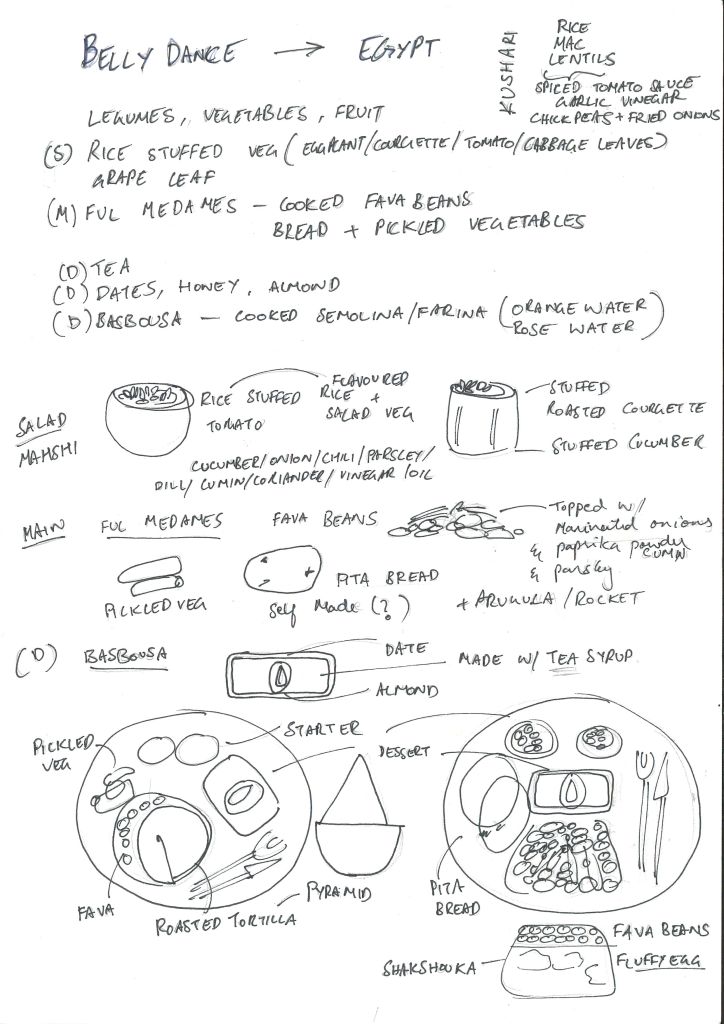 BELLY DANCE → EGYPT
KUSHARI
RICE
MAC
LENTILS
SPICED TOMATO SAUCE
GARLIC VINEGAR
CHICKPEAS + FRIED ONIONS
LEGUMES, VEGETABLES, FRUIT
(S) RICE STUFFED VEG (EGGPLANT/COURGETTE/TOMATO/CABBAGE LEAVES)
GRAPE LEAF
(M) FUL MEDAMES - COOKED FAVA BEANS
BREAD + PICKLED VEGETABLES
(D) TEA
(D) DATES, HONEY, ALMOND
(D) BASBOUSA - COOKED SEMOLINA/FARINA (ORANGE WATER
ROSE WATER)
SALAD
MAHSHI
RICE STUFFED
TOMATO
FLAVOURED
RICE +
SALAD VEG
STUFFED
ROASTED COURGETTE
STUFFED CUCUMBER
CUCUMBER/ONION/CHILI/PARSLEY/
DILL/CUMIN/CORIANDER/VINEGAR/OIL
MAIN
FUL MEDAMES
FAVA BEANS
Topped w/
Marinated onions
& paprika powder
CUMIN
& parsley
+ ARUGULA/ROCKET
PICKLED VEG
PITA BREAD
Self Made (?)
(D) BASBOUSA
DATE
MADE W/ TEA SYRUP
ALMOND
PICKLED
VEG
STARTER
DESSERT
FAVA
ROASTED TORTILLA
PYRAMID
PITA
BREAD
SHAKSHOUKA
FAVA BEANS
FLUFFY EGG